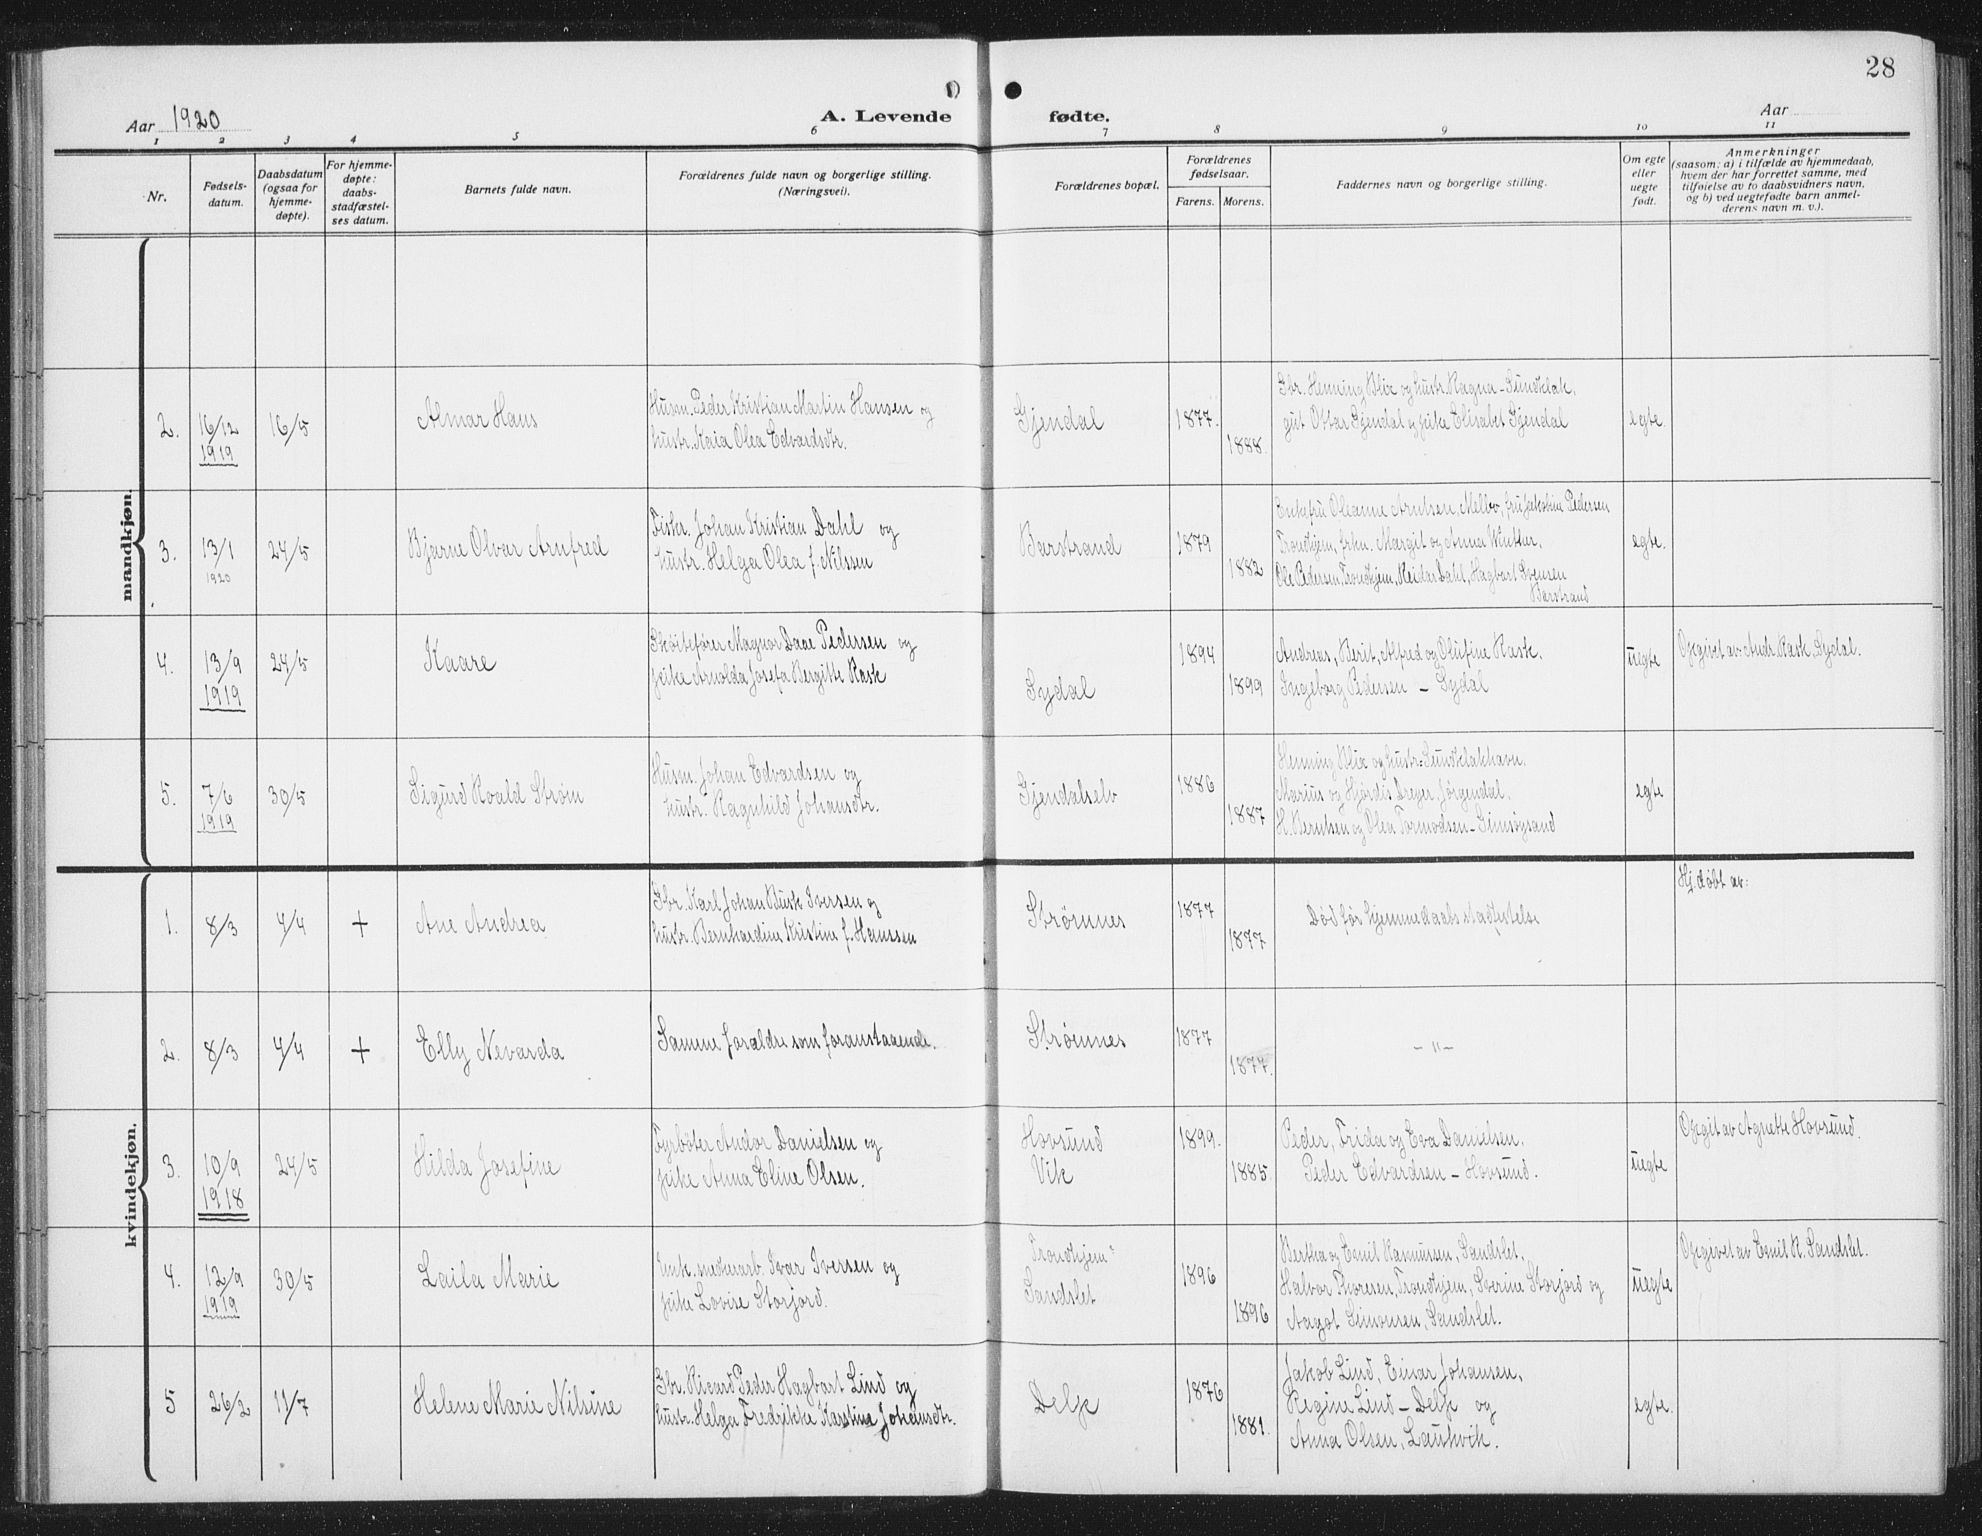 28
Aar 1920
A. Levende fødte.
Aar
1 2 3 4 5 6 7 8 9 10 11
Nr.
Fødsels-
datum.
Daabsdatum
(ogsaa for
hjemme-
døpte).
For hjemme-
døpte:
daabs-
stadfæstel-
ses datum.
Barnets fulde navn.
Forældrenes fulde navn og borgerlige stilling.
(Næringsvei).
Forældrenes bopæl.
Forældrenes
fødselsaar.
Farens. Morens.
Faddernes navn og borgerlige stilling.
Om egte
eller
uegte
født.
Anmerkninger
(saasom: a) i tilfælde av hjemmedaab,
hvem der har forrettet samme, med
tilføielse av to daabsvidners navn,
og b) ved uegtefødte barn anmel-
derens navn m. v.).
mandkjøn.
2. 16/12 1919 16/5 Almar Hans
Husm. Peder Kristian Martin Hansen og
hustr. Kaia Olea Edvardsdtr.
Gjendal 1877. 1888.
Gbr. Henning Blix og hustr. Ragna - Sundklak,
gut Ottar Gjendal og pike Elisabet Gjendal
egte.
3. 13/1 1920 24/5 Bjarne Olvar Arnfred
Fisker Johan Kristian Dahl og
hustr. Helga Olea f. Nilssen
Barstrand 1879 1882
Enkefru Oleanne Arntsen, Melbo, fru Jakobine Pedersen
Trondhjem, frkn. Margit og Anna Winther,
Ole Pedersen, Trondhjem, Reidar Dahl, Hagbart Svensen
Barstrand
egte.
4. 13/9 1919 24/5 Kaare
Skøitefører Magnar Daae Pedersen og
pike Arnolda Josefa Bergitte Rask
Sydal 1894 1899
Andreas, Berit, Alfred og Olufine Rask.
Ingeborg Pedersen - Sydal
uegte
Opgivet av Andr. Rask, Sydal.
5. 7/6 1919 30/5 Sigurd Roald Strøm
Husm. Johan Edvardsen og
hustr. Ragnhild Johansdtr.
Gjendalselv 1886 1887
Henning Blix og hustr. Sundklakhavn.
Marius og Hjørdis Dreyer, Jørgendal,
H. Berntsen og Olea Tormodsen - Gimsøysand
egte
kvindekjøn.
1. 8/3 4/4 + Ane Andrea
Gbr. Karl Johan Busk Iversen og
hustr. Bernhardine Kristine f. Hanssen
Strømnes 1877 1877
Død før hjemmedaabsstadfestelse
Hj.døbt av:
2. 8/3 4/4 + Elly Nevarda
Samme forældre som foranstaaende.
Strømnes 1877 1877.
- " -
3. 10/9 1918 24/5 Hilda Josefine
Fyrbøter Andor Danielsen og
pike Anna Eline Olsen.
Hovsund
Vik
1899. 1885.
Peder, Frida og Eva Danielsen.
Peder Edvardsen - Hovsund.
uegte
Opgit av Agnette Hovsund.
4. 12/9 1919 30/5 Laila Marie
Ivar Iversen og
pike Lovise Storjord.
Trondhjem
Sandslet
1896 1896
Bertha og Emil Rasmussen, Sandslet,
Halvor Thoresen, Trondhjem, Sverine Storjord og
Aagot Simonsen, Sandslet.
uegte
Opgivet av Emil R. Sandslet.
5 26/2 11/7 Helene Marie Nilsine
Gbr. Ricard Peder Hagbart Lind og
hustr. Helga Fredrikke Karstine Johansdtr.
Delp 1876 1881.
Jakob Lind, Einar Johansen,
Regine Lind - Delp og
Anna Olsen, Laukvik.
egte.